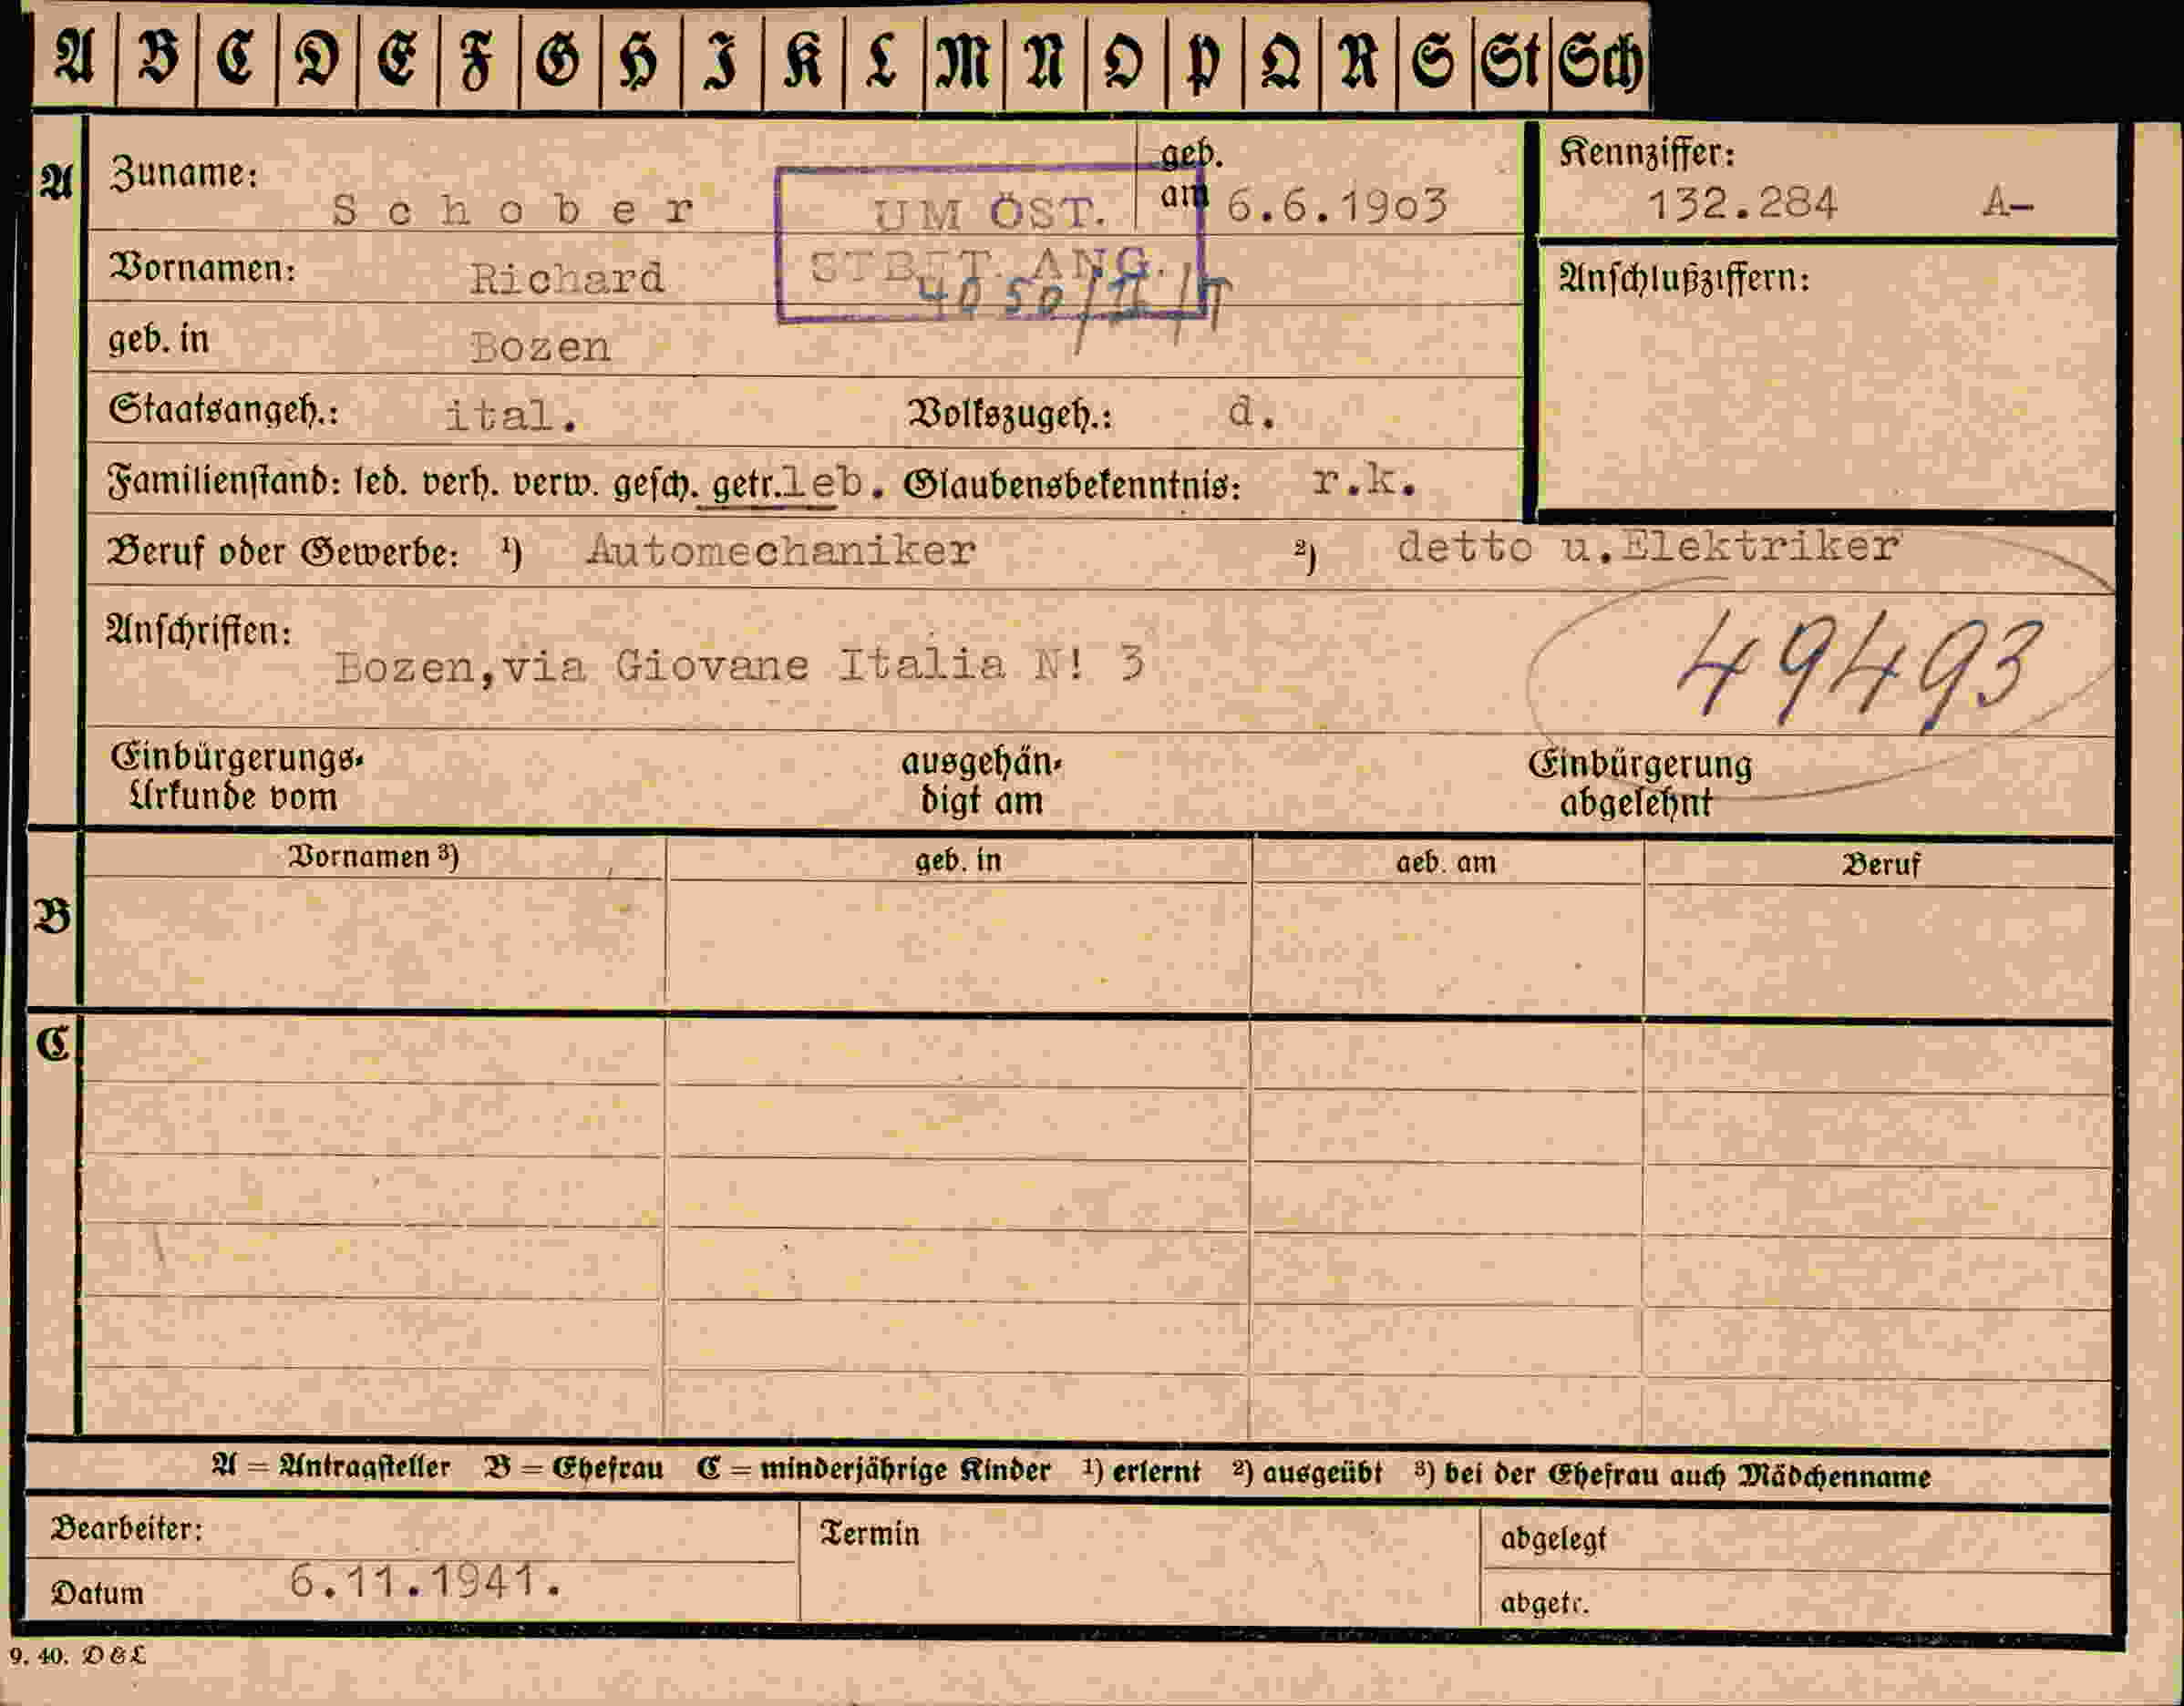 A B C D E F G H I K L M N O P Q R S St Sch
A
Zuname: Schober
UM ÖST.
geb. am 6.6.1903
Kennziffer:
132.284 A-
Vornamen: Richard
ANG.
4050/II/
Anschlußziffern:
geb. in Bozen
Staatsangeh.: ital. Volkszugeh.: d.
Familienstand: led. verh. verw. gesch. getr. leb. Glaubensbekenntnis: r.k.
Beruf oder Gewerbe: ¹) Automechaniker ²) detto u.Elektriker
Anschriften:
Bozen,via Giovane Italia N! 3
49493
Einbürgerungs-
Urkunde vom
ausgehän-
digt am
Einbürgerung
abgelehnt
B
Vornamen ³) geb. in geb. am Beruf
C
A = Antragsteller B = Ehefrau C = minderjährige Kinder ¹) erlernt ²) ausgeübt ³) bei der Ehefrau auch Mädchenname
Bearbeiter: Termin abgelegt
Datum 6.11.1941. abgetr.
9. 40. D & L